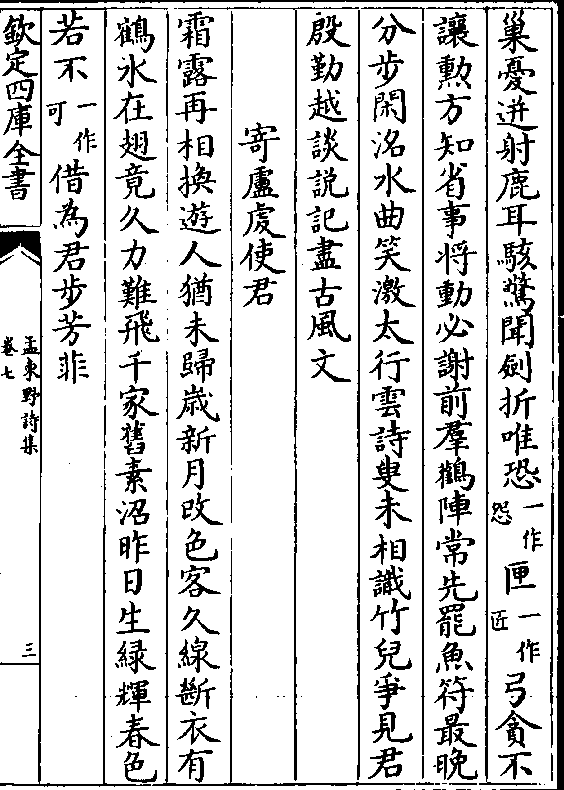 巢憂迸射鹿耳駭驚聞劍折唯恐一作怨匣一作匠弓貪不
讓勲方知省事將動必謝前羣鶴陣常先罷魚符最晚
分步閑洺水曲笑激太行雲詩叟未相識竹兒爭見君
殷勤越談説記盡古風文
寄盧䖍使君
霜露再相換遊人猶未歸歳新月改色客久線斷衣有
鶴氷在翅竟久力難飛千家舊素沼昨日生緑輝春色
若不一作可借為君步芳菲
欽定四庫全書
孟東野詩集
卷七
三